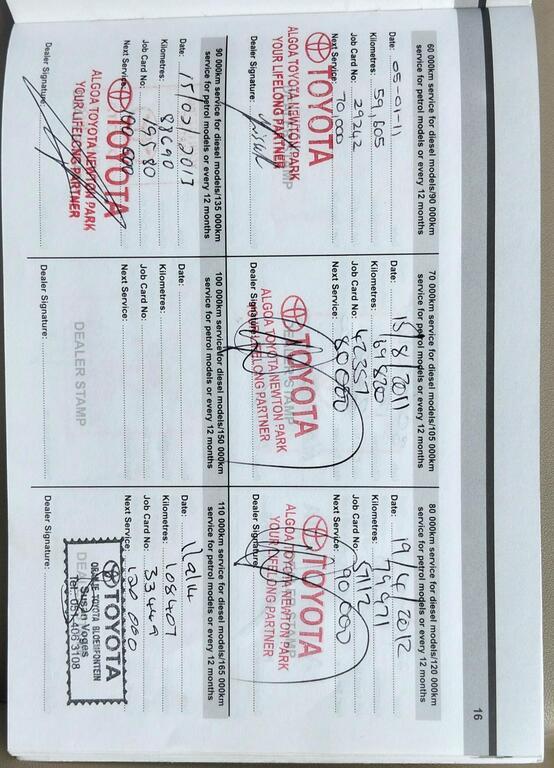 16
60 000km service for diesel models/90 000km
service for petrol models or every 12 months
Date: 05-01-11
Kilometres: 59,605
Job Card No: 29242
Next Service: 70,000
TOYOTA
DEALER STAMP
ALGOA TOYOTA NEWTON PARK
YOUR LIFELONG PARTNER
Dealer Signature:
70 000km service for diesel models/105 000km
service for petrol models or every 12 months
Date: 15/8/2011
Kilometres: 69820
Job Card No: 42357
Next Service: 80000
TOYOTA
DEALER STAMP
ALGOA TOYOTA NEWTON PARK
YOUR LIFELONG PARTNER
Dealer Signature:
80 000km service for diesel models/120 000km
service for petrol models or every 12 months
Date: 19/4/2012
Kilometres: 79971
Job Card No:
Next Service: 90 000
TOYOTA
DEALER STAMP
ALGOA TOYOTA NEWTON PARK
YOUR LIFELONG PARTNER
Dealer Signature:
90 000km service for diesel models/135 000km
service for petrol models or every 12 months
Date: 15/02/2013
Kilometres: 88690
Job Card No: 79580
Next Service: 100 000
TOYOTA
ALGOA TOYOTA NEWTON PARK
YOUR LIFELONG PARTNER
Dealer Signature:
100 000km service for diesel models/150 000km
service for petrol models or every 12 months
Date:
Kilometres:
Job Card No:
Next Service:
DEALER STAMP
Dealer Signature:
110 000km service for diesel models/165 000km
service for petrol models or every 12 months
Date: 11/9/14
Kilometres: 108407
Job Card No: 33449
Next Service: 120 000
TOYOTA
ORANJE TOYOTA BLOEMFONTEIN
Susan Voges
Tel: 051 4083108
Dealer Signature: